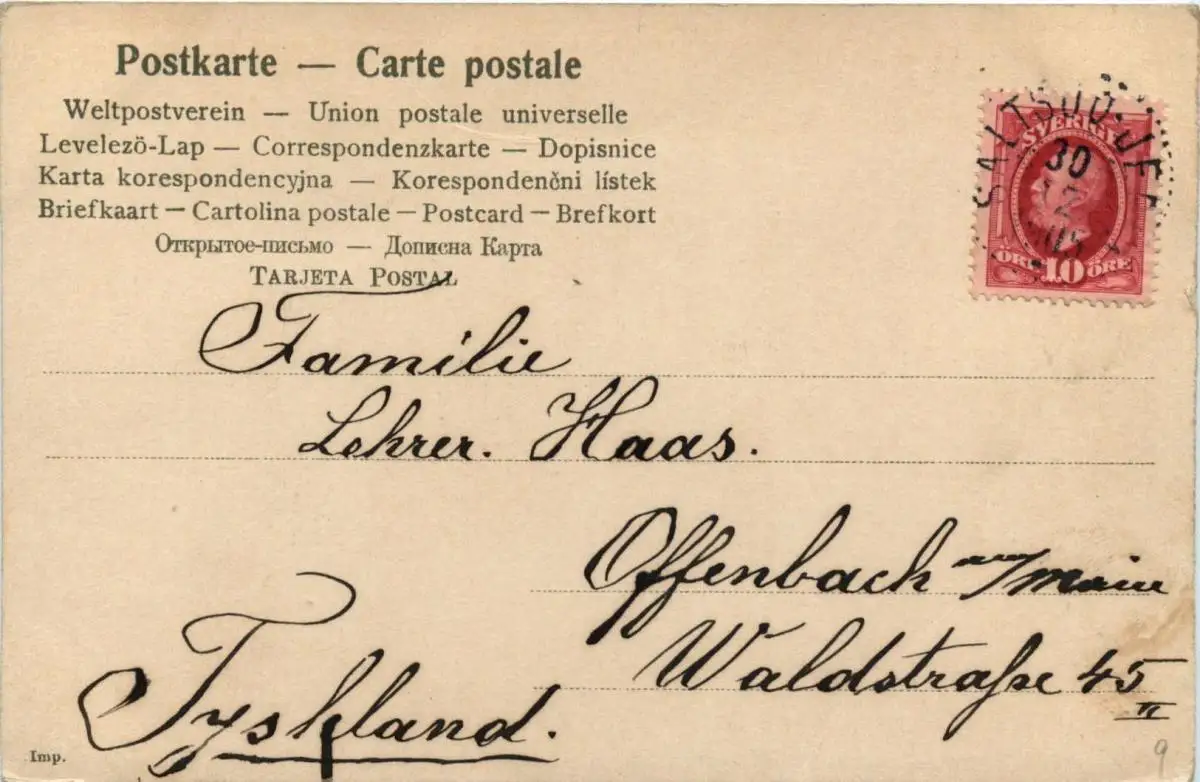 Postkarte — Carte postale
Weltpostverein — Union postale universelle
Levelezö-Lap — Correspondenzkarte — Dopisnice
Karta korespondencyjna — Korespondenčni lístek
Briefkaart — Cartolina postale — Postcard — Brefkort
Открытое-письмо — Дописна Карта
TARJETA POSTAL
SVERIGE
30
12
ÖRE 10 ÖRE
Familie
Lehrer. Haas.
Offenbach a/Main
Waldstraße 45
II
Tyskland.
Imp.
9